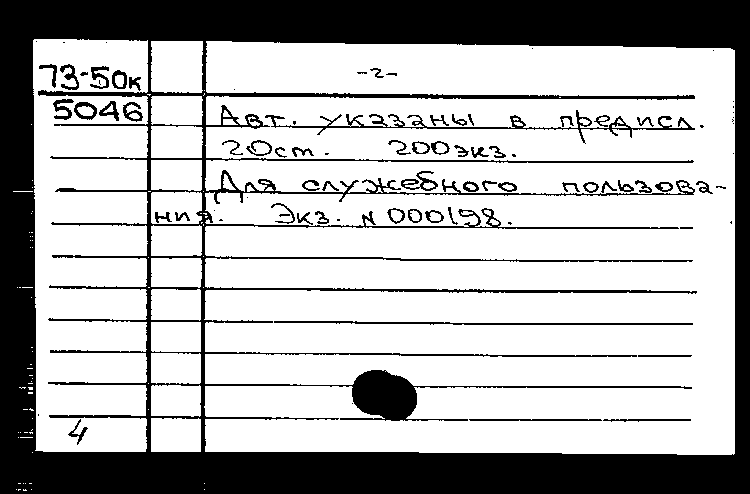 73-50к
-2-
5046
Авт. указаны в предисл.
20cm. 200экз.
Для служебного пользова-
ния. Экз. N 000198.
4